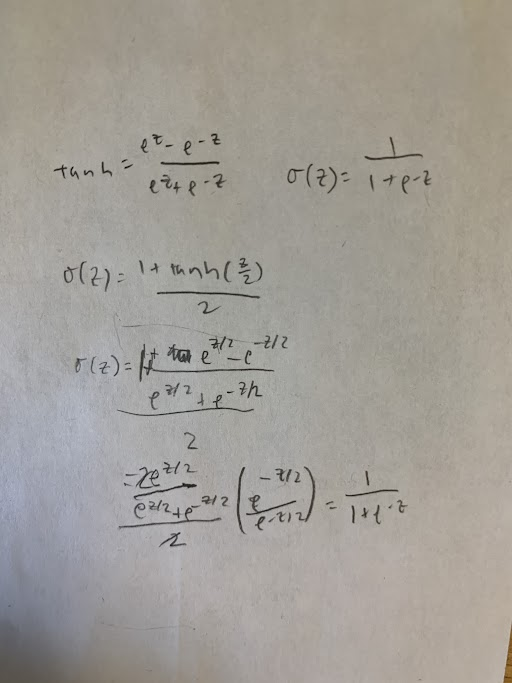 tanh = (e^z - e^-z)/(e^z + e^-z)    σ(z) = 1/(1 + e^-z)
σ(z) = (1 + tanh(z/2))/2
σ(z) = (1 + (e^z/2 - e^-z/2)/(e^z/2 + e^-z/2))/2
= (2e^z/2/(e^z/2 + e^-z/2))/2 (e^-z/2/e^-z/2) = 1/(1 + e^-z)